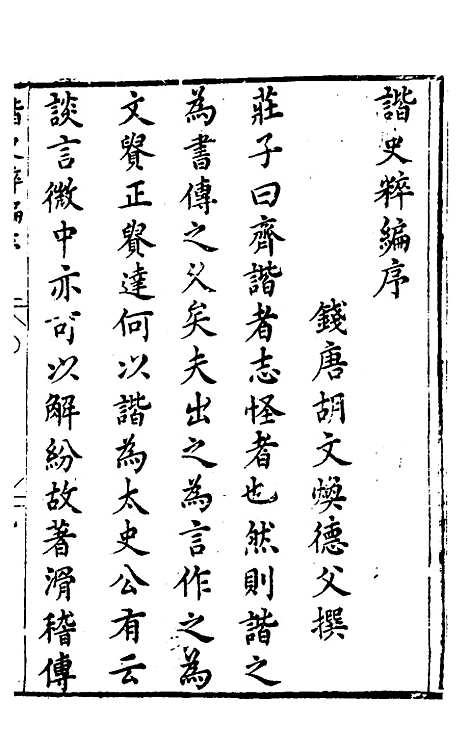 諧史粹編序
錢唐胡文煥德父撰
莊子曰齊諧者志怪者也然則諧之
為書傳之久矣夫出之為言作之為
文貴正貴達何以諧為太史公有云
談言微中亦可以解紛故著滑稽傳